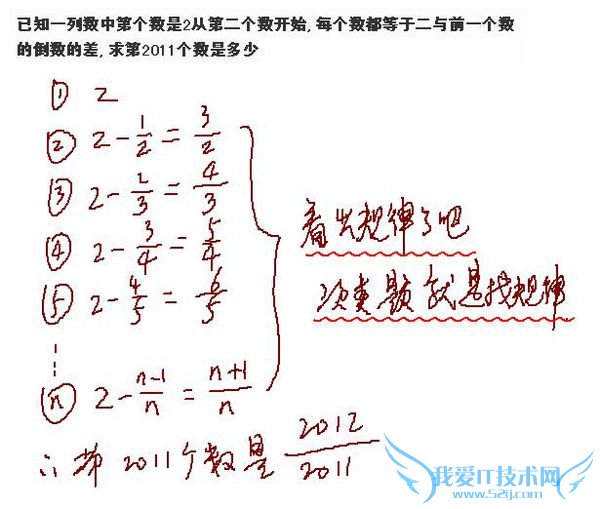 已知一列数中第个数是2从第二个数开始, 每个数都等于二与前一个数
的倒数的差, 求第2011个数是多少
① 2
② 2-1/2=3/2
③ 2-2/3=4/3
④ 2-3/4=5/4
⑤ 2-4/5=6/5
看出规律了吧
这类题就是找规律
⋮
ⓝ 2-n-1/n=n+1/n
∴第2011个数是2012/2011
我爱IT技术网
www.52ij.com